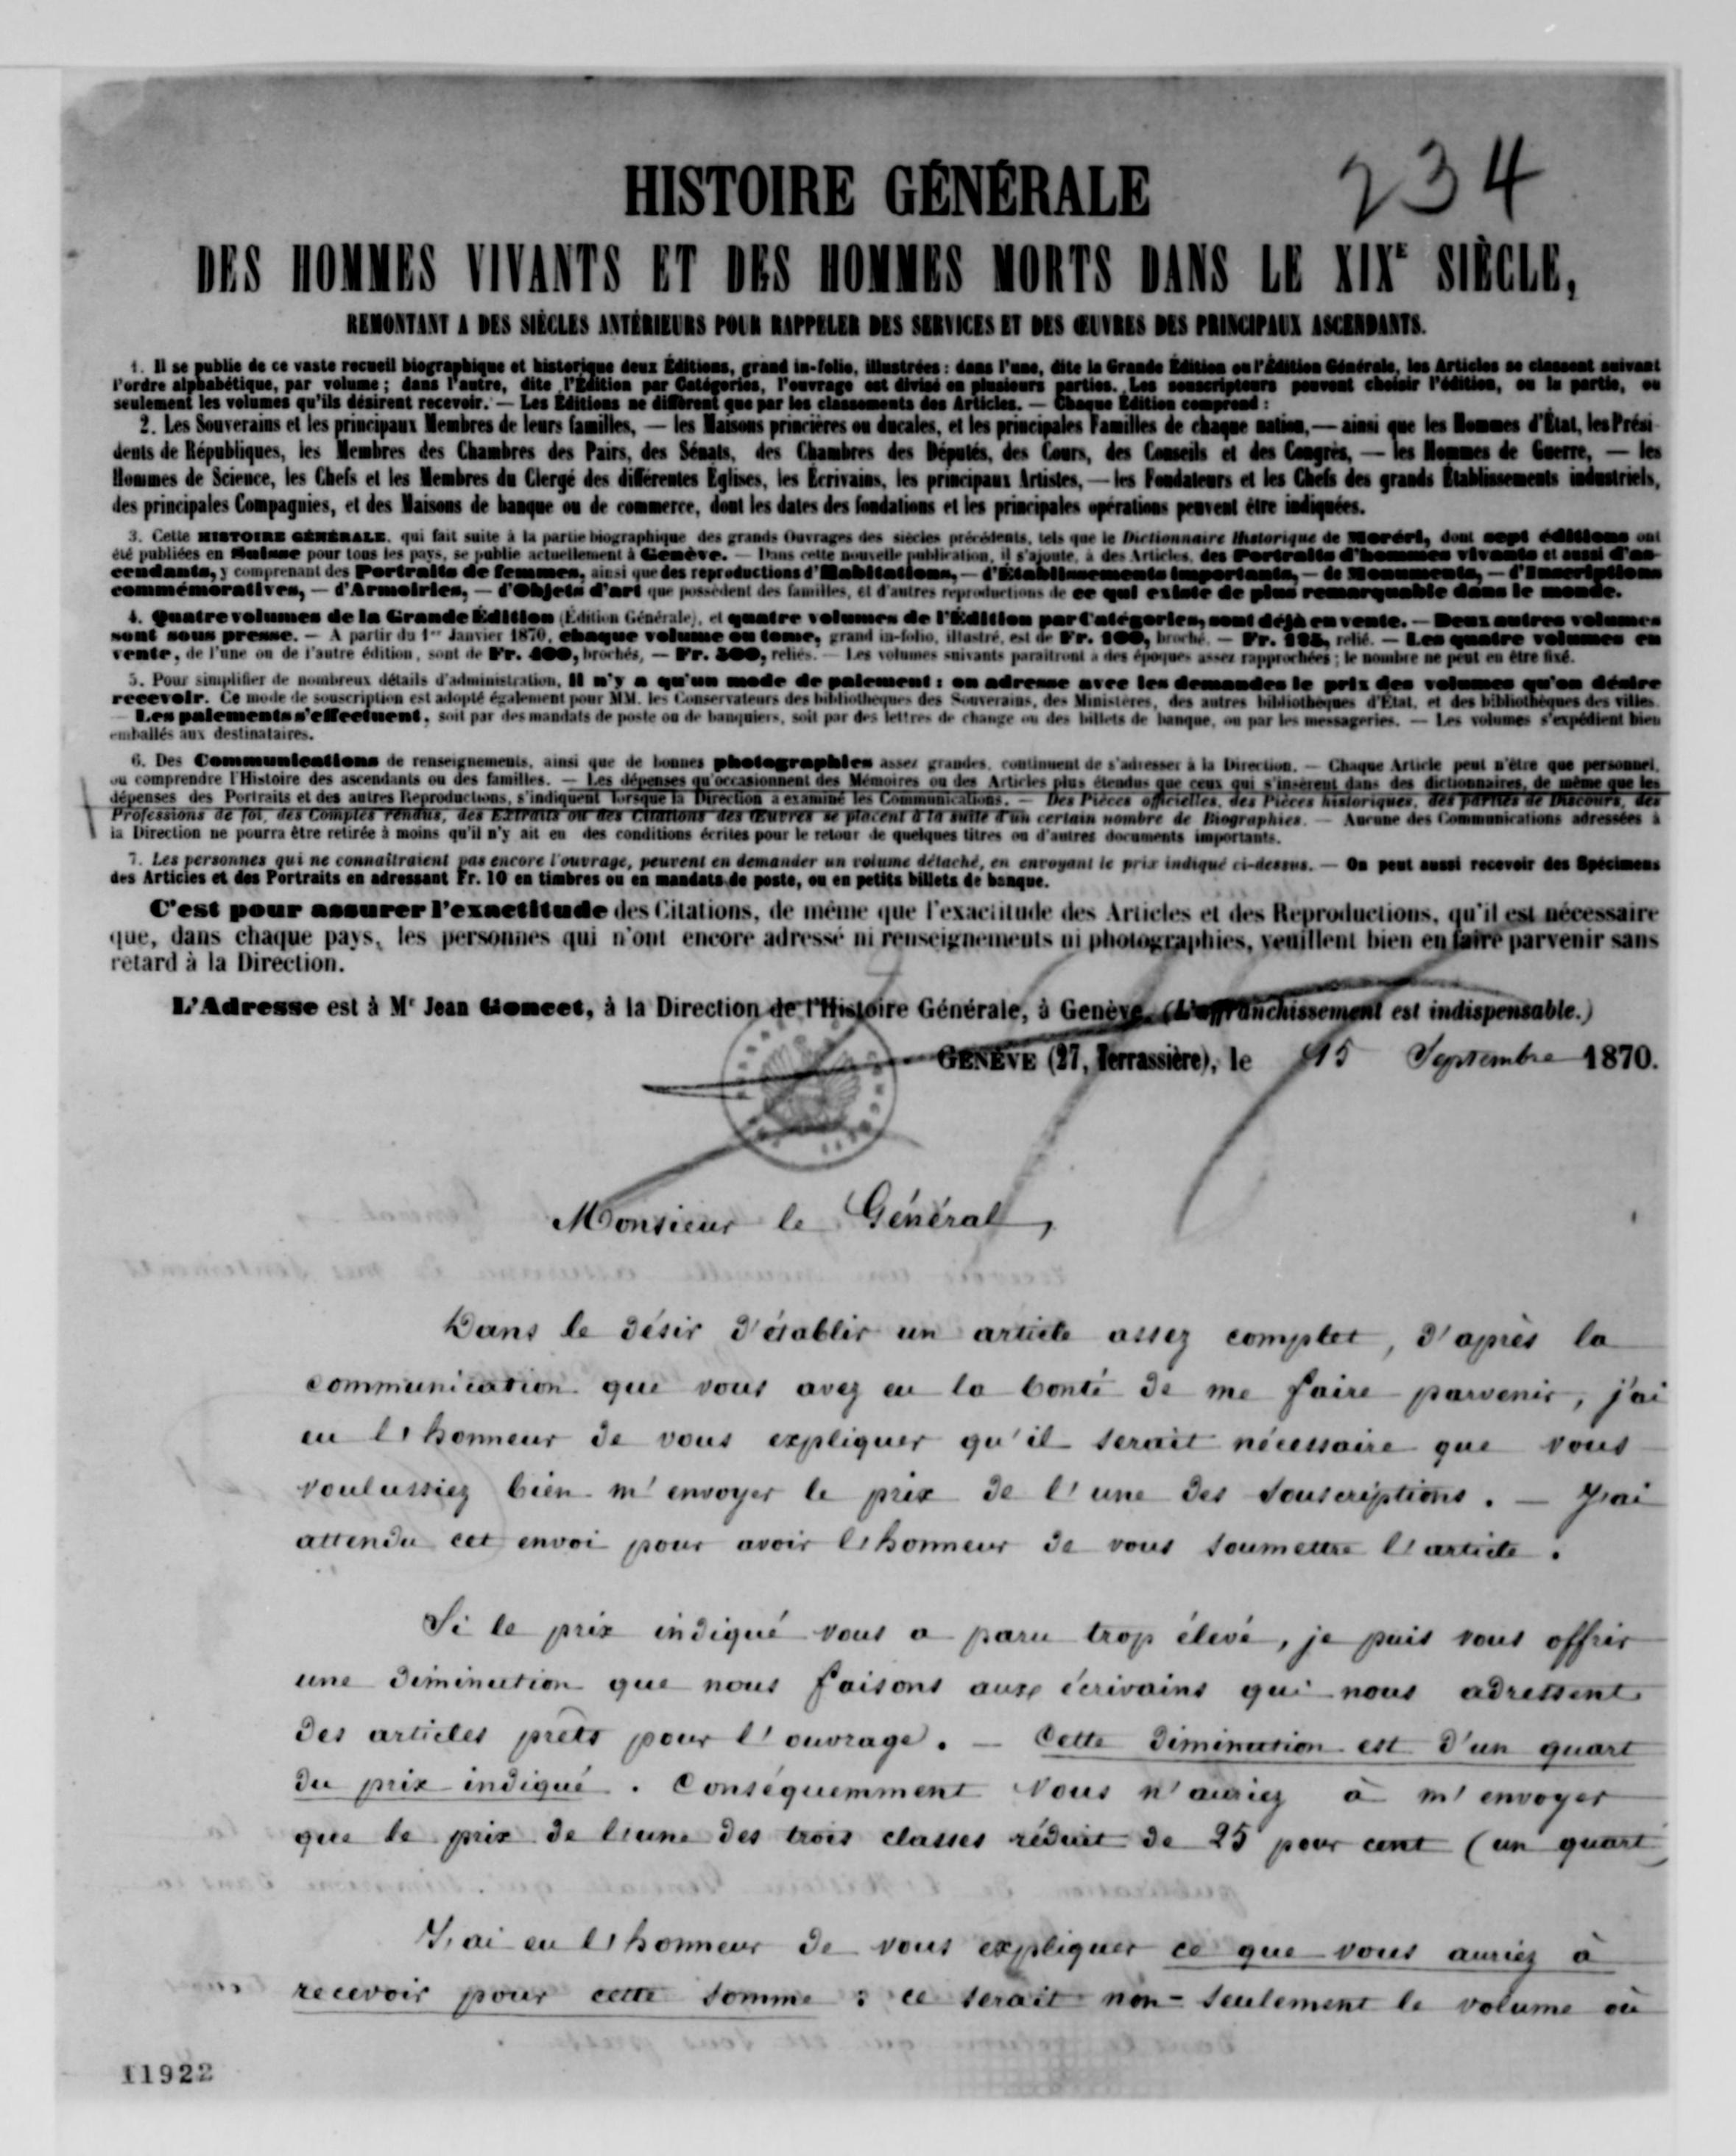 234
HISTOIRE GÉNÉRALE
DES HOMMES VIVANTS ET DES HOMMES MORTS DANS LE XIXE SIÈCLE,
REMONTANT A DES SIÈCLES ANTÉRIEURS POUR RAPPELER DES SERVICES ET DES ŒUVRES DES PRINCIPAUX ASCENDANTS.
1. Il se publie de ce vaste recueil biographique et historique deux Éditions, grand in-folio, illustrées : dans l'une, dite la Grande Édition ou l'Édition Générale, les Articles se classent suivant
l'ordre alphabétique, par volume ; dans l'autre, dite l'Édition par Catégories, l'ouvrage est divisé en plusieurs parties. Les souscripteurs peuvent choisir l'édition, ou la partie, ou
seulement les volumes qu'ils désirent recevoir. — Les Éditions ne diffèrent que par les classements des Articles. — Chaque Édition comprend :
2. Les Souverains et les principaux Membres de leurs familles, — les Maisons princières ou ducales, et les principales Familles de chaque nation, — ainsi que les Hommes d'État, les Prési-
dents de Républiques, les Membres des Chambres des Pairs, des Sénats, des Chambres des Députés, des Cours, des Conseils et des Congrès, — les Hommes de Guerre, — les
Hommes de Science, les Chefs et les Membres du Clergé des différentes Églises, les Écrivains, les principaux Artistes, — les Fondateurs et les Chefs des grands Établissements industriels,
des principales Compagnies, et des Maisons de banque ou de commerce, dont les dates des fondations et les principales opérations peuvent être indiquées.
3. Cette HISTOIRE GÉNÉRALE, qui fait suite à la partie biographique des grands Ouvrages des siècles précédents, tels que le Dictionnaire Historique de Moréri, dont sept éditions ont
été publiées en Suisse pour tous les pays, se publie actuellement à Genève. — Dans cette nouvelle publication, il s'ajoute, à des Articles, des Portraits d'hommes vivants et aussi d'as-
cendants, y comprenant des Portraits de femmes, ainsi que des reproductions d'Habitations, — d'Établissements importants, — de Monuments, — d'Inscriptions
commémoratives, — d'Armoiries, — d'Objets d'art que possèdent des familles, et d'autres reproductions de ce qui existe de plus remarquable dans le monde.
4. Quatre volumes de la Grande Édition (Édition Générale), et quatre volumes de l'Édition par Catégories, sont déjà en vente. — Deux autres volumes
sont sous presse. — A partir du 1er Janvier 1870, chaque volume ou tome, grand in-folio, illustré, est de Fr. 100, broché. — Fr. 125, relié. — Les quatre volumes en
vente, de l'une ou de l'autre édition, sont de Fr. 400, brochés, — Fr. 500, reliés. — Les volumes suivants paraîtront à des époques assez rapprochées ; le nombre ne peut en être fixé.
5. Pour simplifier de nombreux détails d'administration, il n'y a qu'un mode de paiement : on adresse avec les demandes le prix des volumes qu'on désire
recevoir. Ce mode de souscription est adopté également pour MM. les Conservateurs des bibliothèques des Souverains, des Ministères, des autres bibliothèques d'État, et des bibliothèques des villes.
— Les paiements s'effectuent, soit par des mandats de poste ou de banquiers, soit par des lettres de change ou des billets de banque, ou par les messageries. — Les volumes s'expédient bien
emballés aux destinataires.
6. Des Communications de renseignements, ainsi que de bonnes photographies assez grandes, continuent de s'adresser à la Direction. — Chaque Article peut n'être que personnel,
ou comprendre l'Histoire des ascendants ou des familles. — Les dépenses qu'occasionnent des Mémoires ou des Articles plus étendus que ceux qui s'insèrent dans des dictionnaires, de même que les
dépenses des Portraits et des autres Reproductions, s'indiquent lorsque la Direction a examiné les Communications. — Des Pièces officielles, des Pièces historiques, des parties de Discours, des
Professions de foi, des Comptes rendus, des Extraits ou des Citations des Œuvres se placent à la suite d'un certain nombre de Biographies. — Aucune des Communications adressées à
la Direction ne pourra être retirée à moins qu'il n'y ait eu des conditions écrites pour le retour de quelques titres ou d'autres documents importants.
7. Les personnes qui ne connaîtraient pas encore l'ouvrage, peuvent en demander un volume détaché, en envoyant le prix indiqué ci-dessus. — On peut aussi recevoir des Spécimens
des Articles et des Portraits en adressant Fr. 10 en timbres ou en mandats de poste, ou en petits billets de banque.
C'est pour assurer l'exactitude des Citations, de même que l'exactitude des Articles et des Reproductions, qu'il est nécessaire
que, dans chaque pays, les personnes qui n'ont encore adressé ni renseignements ni photographies, veuillent bien en faire parvenir sans
retard à la Direction.
L'Adresse est à Mr Jean Goncet, à la Direction de l'Histoire Générale, à Genève. (L'affranchissement est indispensable.)
GENÈVE (27, Terrassière), le 15 Septembre 1870.
Monsieur le Général,
Dans le désir d'établir un article assez complet, d'après la
communication que vous avez eu la bonté de me faire parvenir, j'ai
eu l'honneur de vous expliquer qu'il serait nécessaire que vous
voulussiez bien m'envoyer le prix de l'une des souscriptions. — J'ai
attendu cet envoi pour avoir l'honneur de vous soumettre l'article.
Si le prix indiqué vous a paru trop élevé, je puis vous offrir
une diminution que nous faisons aux écrivains qui nous adressent
des articles prêts pour l'ouvrage. — Cette diminution est d'un quart
du prix indiqué. Conséquemment vous n'auriez à m'envoyer
que le prix de l'une des trois classes réduit de 25 pour cent (un quart)
J'ai eu l'honneur de vous expliquer ce que vous auriez à
recevoir pour cette somme : ce serait non-seulement le volume où
11922